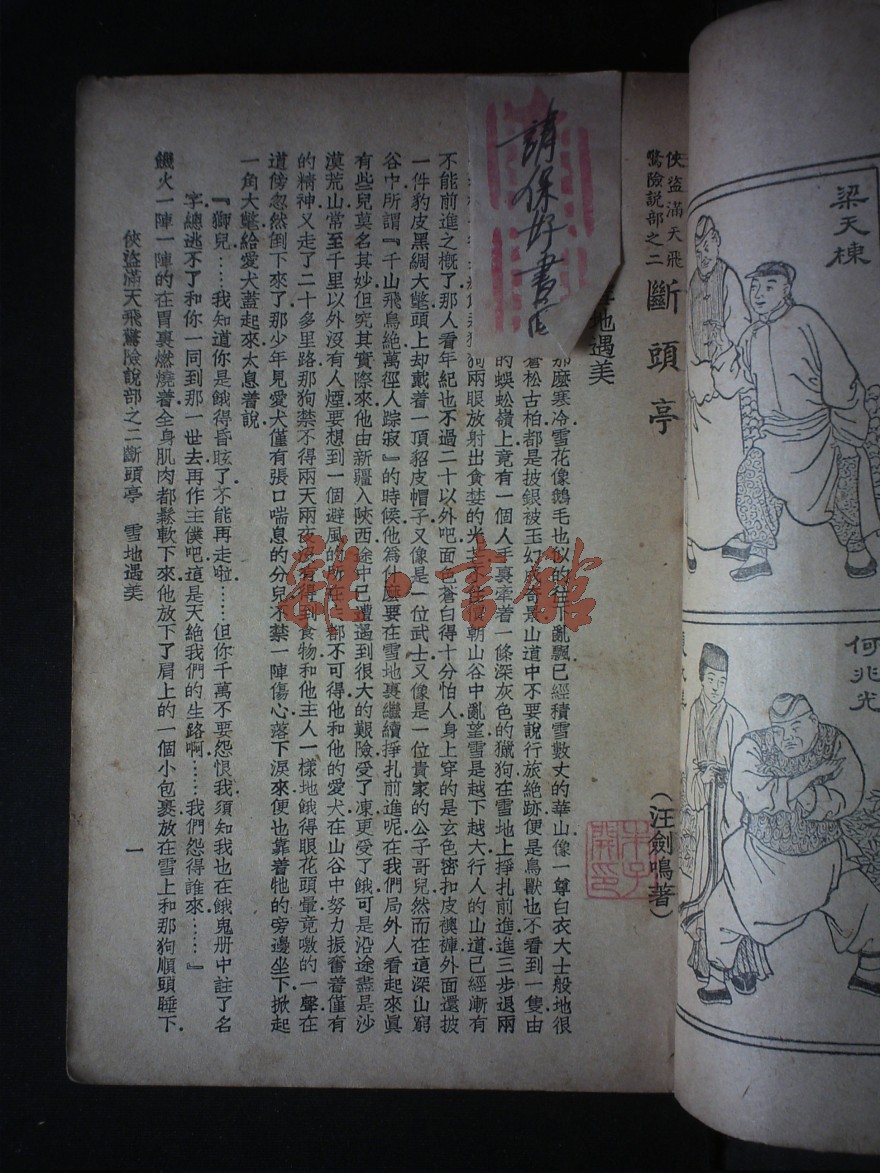 梁天棟
何兆光
俠盜滿天飛
驚險說部之二
斷頭亭
(汪劍鳴著)
地遇美
請保好書店
那麼寒冷雪花像鵝毛也似的往下亂飄已經積雪數丈的華山像一尊白衣大士般地很
蒼松古柏都是披銀被玉幻
景山道中不要說行旅絕跡便是鳥獸也不看到一隻由
的蜈蚣嶺上竟有一個人手裏牽着一條深灰色的獵狗在雪地上掙扎前進進三步退兩
狗兩眼放射出貪婪的光
朝山谷中亂望雪是越下越大行人的山道已經漸有
不能前進之概了那人看年紀也不過二十以外吧面色蒼白得十分怕人身上穿的是玄色密扣皮襖褲外面還披
一件豹皮黑綢大氅頭上却戴着一頂貂皮帽子又像是一位武士又像是一位貴家的公子哥兒然而在這深山窮
谷中所謂『千山飛鳥絕萬徑人踪寂』的時候他爲什麼要在雪地裏繼續掙扎前進呢在我們局外人看起來眞
有些兒莫名其妙但究其實際來他由新疆入陝西途中已遭遇到很大的艱險受了凍更受了餓可是沿途盡是沙
漠荒山常至千里以外沒有人煙要想到一個避風的所在都不可得他和他的愛犬在山谷中努力振奮着僅有
的精神又走了二十多里路那狗禁不得兩天兩夜
到食物和他主人一樣地餓得眼花頭暈竟噭的一聲在
道傍忽然倒下來了那少年見愛犬僅有張口喘息的分兒不禁一陣傷心落下淚來便也靠着牠的旁邊坐下掀起
一角大氅給愛犬蓋起來太息着說
『獅兒……我知道你是餓得昏眩了不能再走啦……但你千萬不要怨恨我須知我也在餓鬼册中註了名
字總逃不了和你一同到那一世去再作主僕吧這是天絕我們的生路啊……我們怨得誰來……』
饑火一陣一陣的在胃裏燃燒着全身肌肉都鬆軟下來他放下了肩上的一個小包裹放在雪上和那狗順頭睡下
俠盜滿天飛驚險說部之二斷頭亭 雪地遇美
一
雜·書館